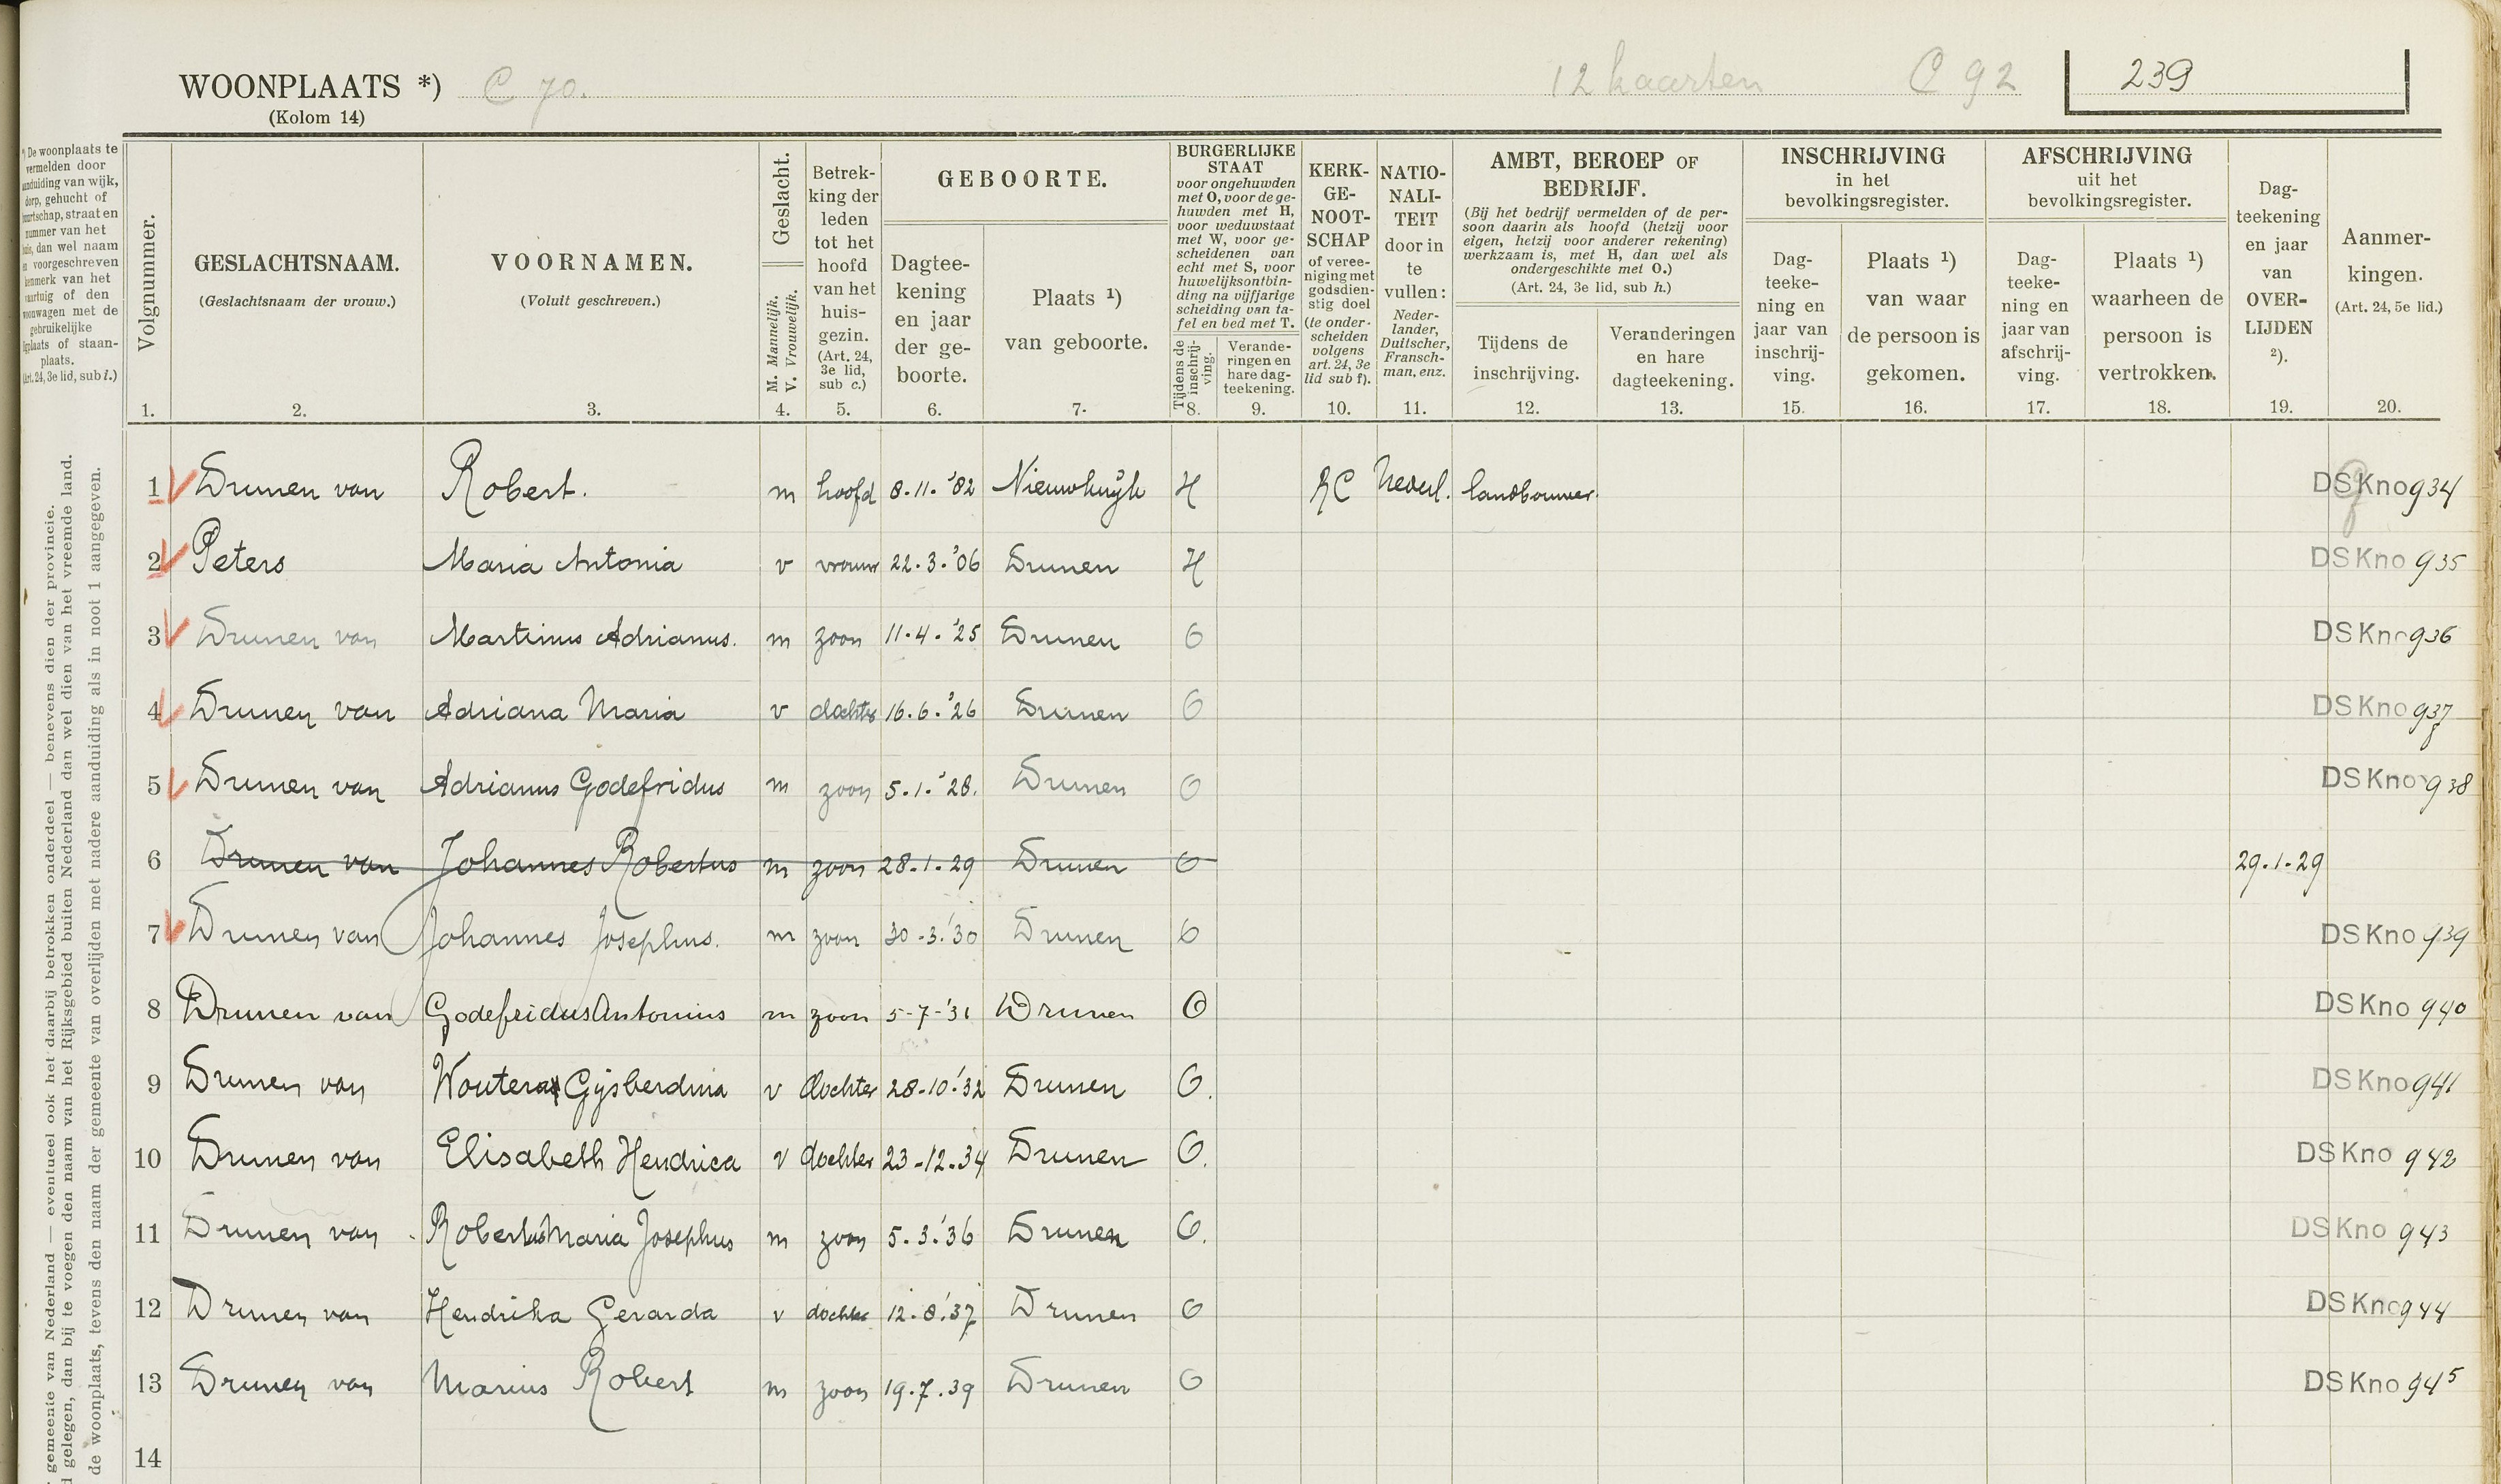 WOONPLAATS *) C 70. 12 kaarten C 92 239
(Kolom 14)
*) De woonplaats te
vermelden door
aanduiding van wijk,
dorp, gehucht of
buurtschap, straat en
nummer van het
huis, dan wel naam
en voorgeschreven
kenmerk van het
vaartuig of den
woonwagen met de
gebruikelijke
ligplaats of staan-
plaats.
(Art. 24, 3e lid, sub i.)
gemeente van Nederland — eventueel ook het daarbij betrokken onderdeel — benevens dien der provincie.
gelegen, dan bij te voegen den naam van het Rijksgebied buiten Nederland dan wel dien van het vreemde land.
de woonplaats, tevens den naam der gemeente van overlijden met nadere aanduiding als in noot 1 aangegeven.
Volgnummer.
1.
GESLACHTSNAAM.
(Geslachtsnaam der vrouw.)
2.
VOORNAMEN.
(Voluit geschreven.)
3.
Geslacht.
M. Mannelijk.
V. Vrouwelijk.
4.
Betrek-
king der
leden
tot het
hoofd
van het
huis-
gezin.
(Art. 24,
3e lid,
sub c.)
5.
GEBOORTE.
Dagtee-
kening
en jaar
der ge-
boorte.
6.
Plaats ¹)
van geboorte.
7.
BURGERLIJKE
STAAT
voor ongehuwden
met O, voor de ge-
huwden met H,
voor weduwstaat
met W, voor ge-
scheidenen van
echt met S, voor
huwelijksontbin-
ding na vijfjarige
scheiding van ta-
fel en bed met T.
Tijdens de
inschrij-
ving.
8.
Verande-
ringen en
hare dag-
teekening.
9.
KERK-
GE-
NOOT-
SCHAP
of veree-
niging met
godsdien-
stig doel
(te onder-
scheiden
volgens
art. 24, 3e
lid sub f).
10.
NATIO-
NALI-
TEIT
door in
te
vullen:
Neder-
lander,
Duitscher,
Fransch-
man, enz.
11.
AMBT, BEROEP OF
BEDRIJF.
(Bij het bedrijf vermelden of de per-
soon daarin als hoofd (hetzij voor
eigen, hetzij voor anderer rekening)
werkzaam is, met H, dan wel als
ondergeschikte met O.)
(Art. 24, 3e lid, sub h.)
Tijdens de
inschrijving.
12.
Veranderingen
en hare
dagteekening.
13.
INSCHRIJVING
in het
bevolkingsregister.
Dag-
teeke-
ning en
jaar van
inschrij-
ving.
15.
Plaats ¹)
van waar
de persoon is
gekomen.
16.
AFSCHRIJVING
uit het
bevolkingsregister.
Dag-
teeke-
ning en
jaar van
afschrij-
ving.
17.
Plaats ¹)
waarheen de
persoon is
vertrokken.
18.
Dag-
teekening
en jaar
van
OVER-
LIJDEN
²).
19.
Aanmer-
kingen.
(Art. 24, 5e lid.)
20.
1 Drunen van Robert. m hoofd 8.11.'82 Nieuwkuijk H RC Nederl. landbouwer. DSKno 934
2 Peters Maria Antonia v vrouw 22.3.'06 Drunen H DSKno 935
3 Drunen van Martinus Adrianus. m zoon 11.4.'25 Drunen O DSKno 936
4 Drunen van Adriana Maria v dochter 16.6.'26 Drunen O DSKno 937
5 Drunen van Adrianus Godefridus m zoon 5.1.'28. Drunen O DSKno 938
6 Drunen van Johannes Robertus m zoon 28.1.29 Drunen O 29.1.29
7 Drunen van Johannes Josephus. m zoon 30-3.'30 Drunen O DSKno 939
8 Drunen van Godefridus Antonius m zoon 5-7-'31 Drunen O DSKno 940
9 Drunen van Woutera Gijsberdina v dochter 28-10.'32 Drunen O. DSKno 941
10 Drunen van Elisabeth Hendrica v dochter 23-12.34 Drunen O. DSKno 942
11 Drunen van Robertus Maria Josephus m zoon 5.3.'36 Drunen O. DSKno 943
12 Drunen van Hendrika Gerarda v dochter 12.8.'37 Drunen O DSKno 944
13 Drunen van Marius Robert m zoon 19.7.39 Drunen O DSKno 945
14